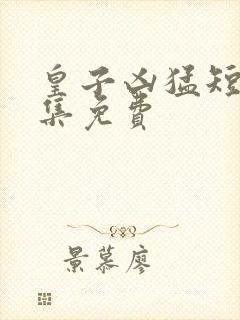 皇子凶猛短
集免费
景慕廖